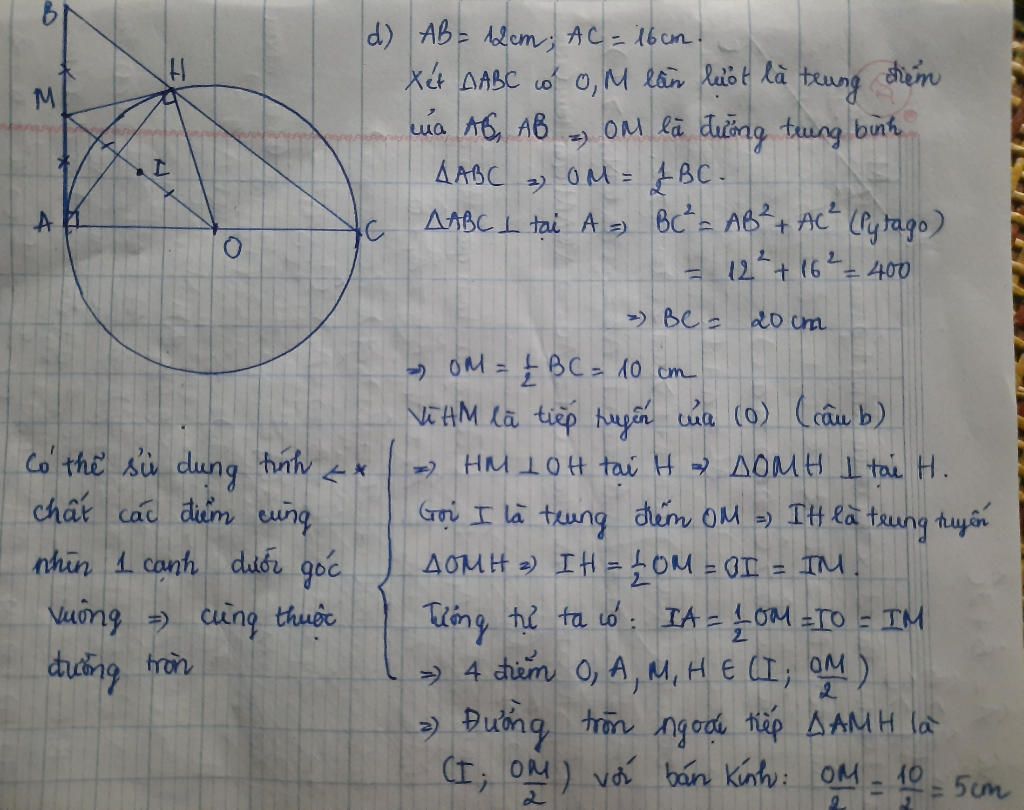 B
H
M
I
A
O
C
d) AB = 12cm; AC = 16cm.
Xét ΔABC có O, M lần lượt là trung điểm
của AC, AB => OM là đường trung bình
ΔABC => OM = 1/2 BC.
ΔABC ⊥ tại A => BC² = AB² + AC² (Pytago)
= 12² + 16² = 400
=> BC = 20 cm
=> OM = 1/2 BC = 10 cm
Vì HM là tiếp tuyến của (O) (câu b)
=> HM ⊥ OH tại H => ΔOMH ⊥ tại H.
Gọi I là trung điểm OM => IH là trung tuyến
ΔOMH => IH = 1/2 OM = OI = IM.
Tương tự ta có: IA = 1/2 OM = IO = IM
=> 4 điểm O, A, M, H ∈ (I; OM/2)
=> Đường tròn ngoại tiếp ΔAMH là
(I; OM/2) với bán kính: OM/2 = 10/2 = 5cm
Có thể sử dụng tính <- *
chất các điểm cùng
nhìn 1 cạnh dưới góc
vuông => cùng thuộc
đường tròn